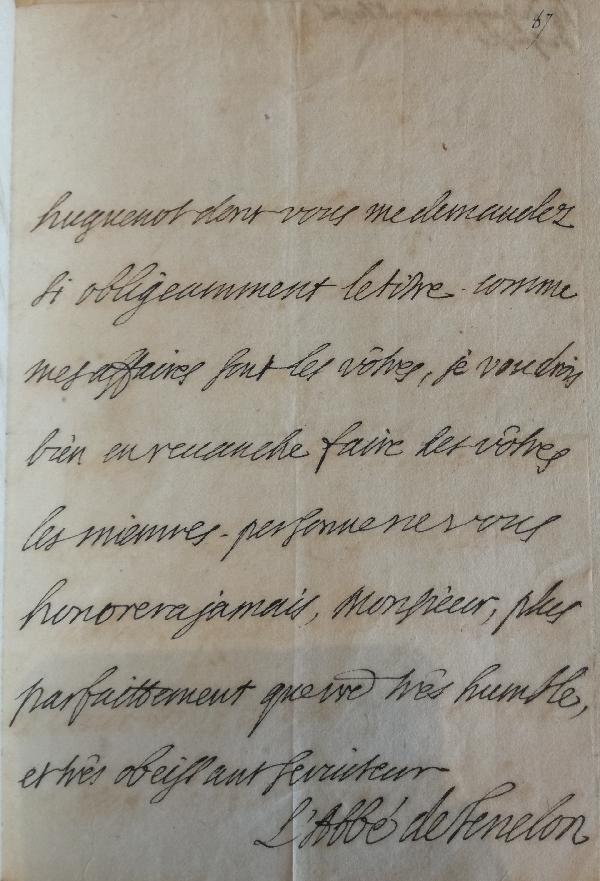 67
huguenot dont vous me demandez
si obligeamment le titre. comme
mes affaires sont les vôtres, je voudrois
bien en revanche faire des vôtres
les miennes. personne ne vous
honorera jamais, Monsieur, plus
parfaittement que vre très humble,
et très obeissant serviteur
L'Abbé de Fenelon